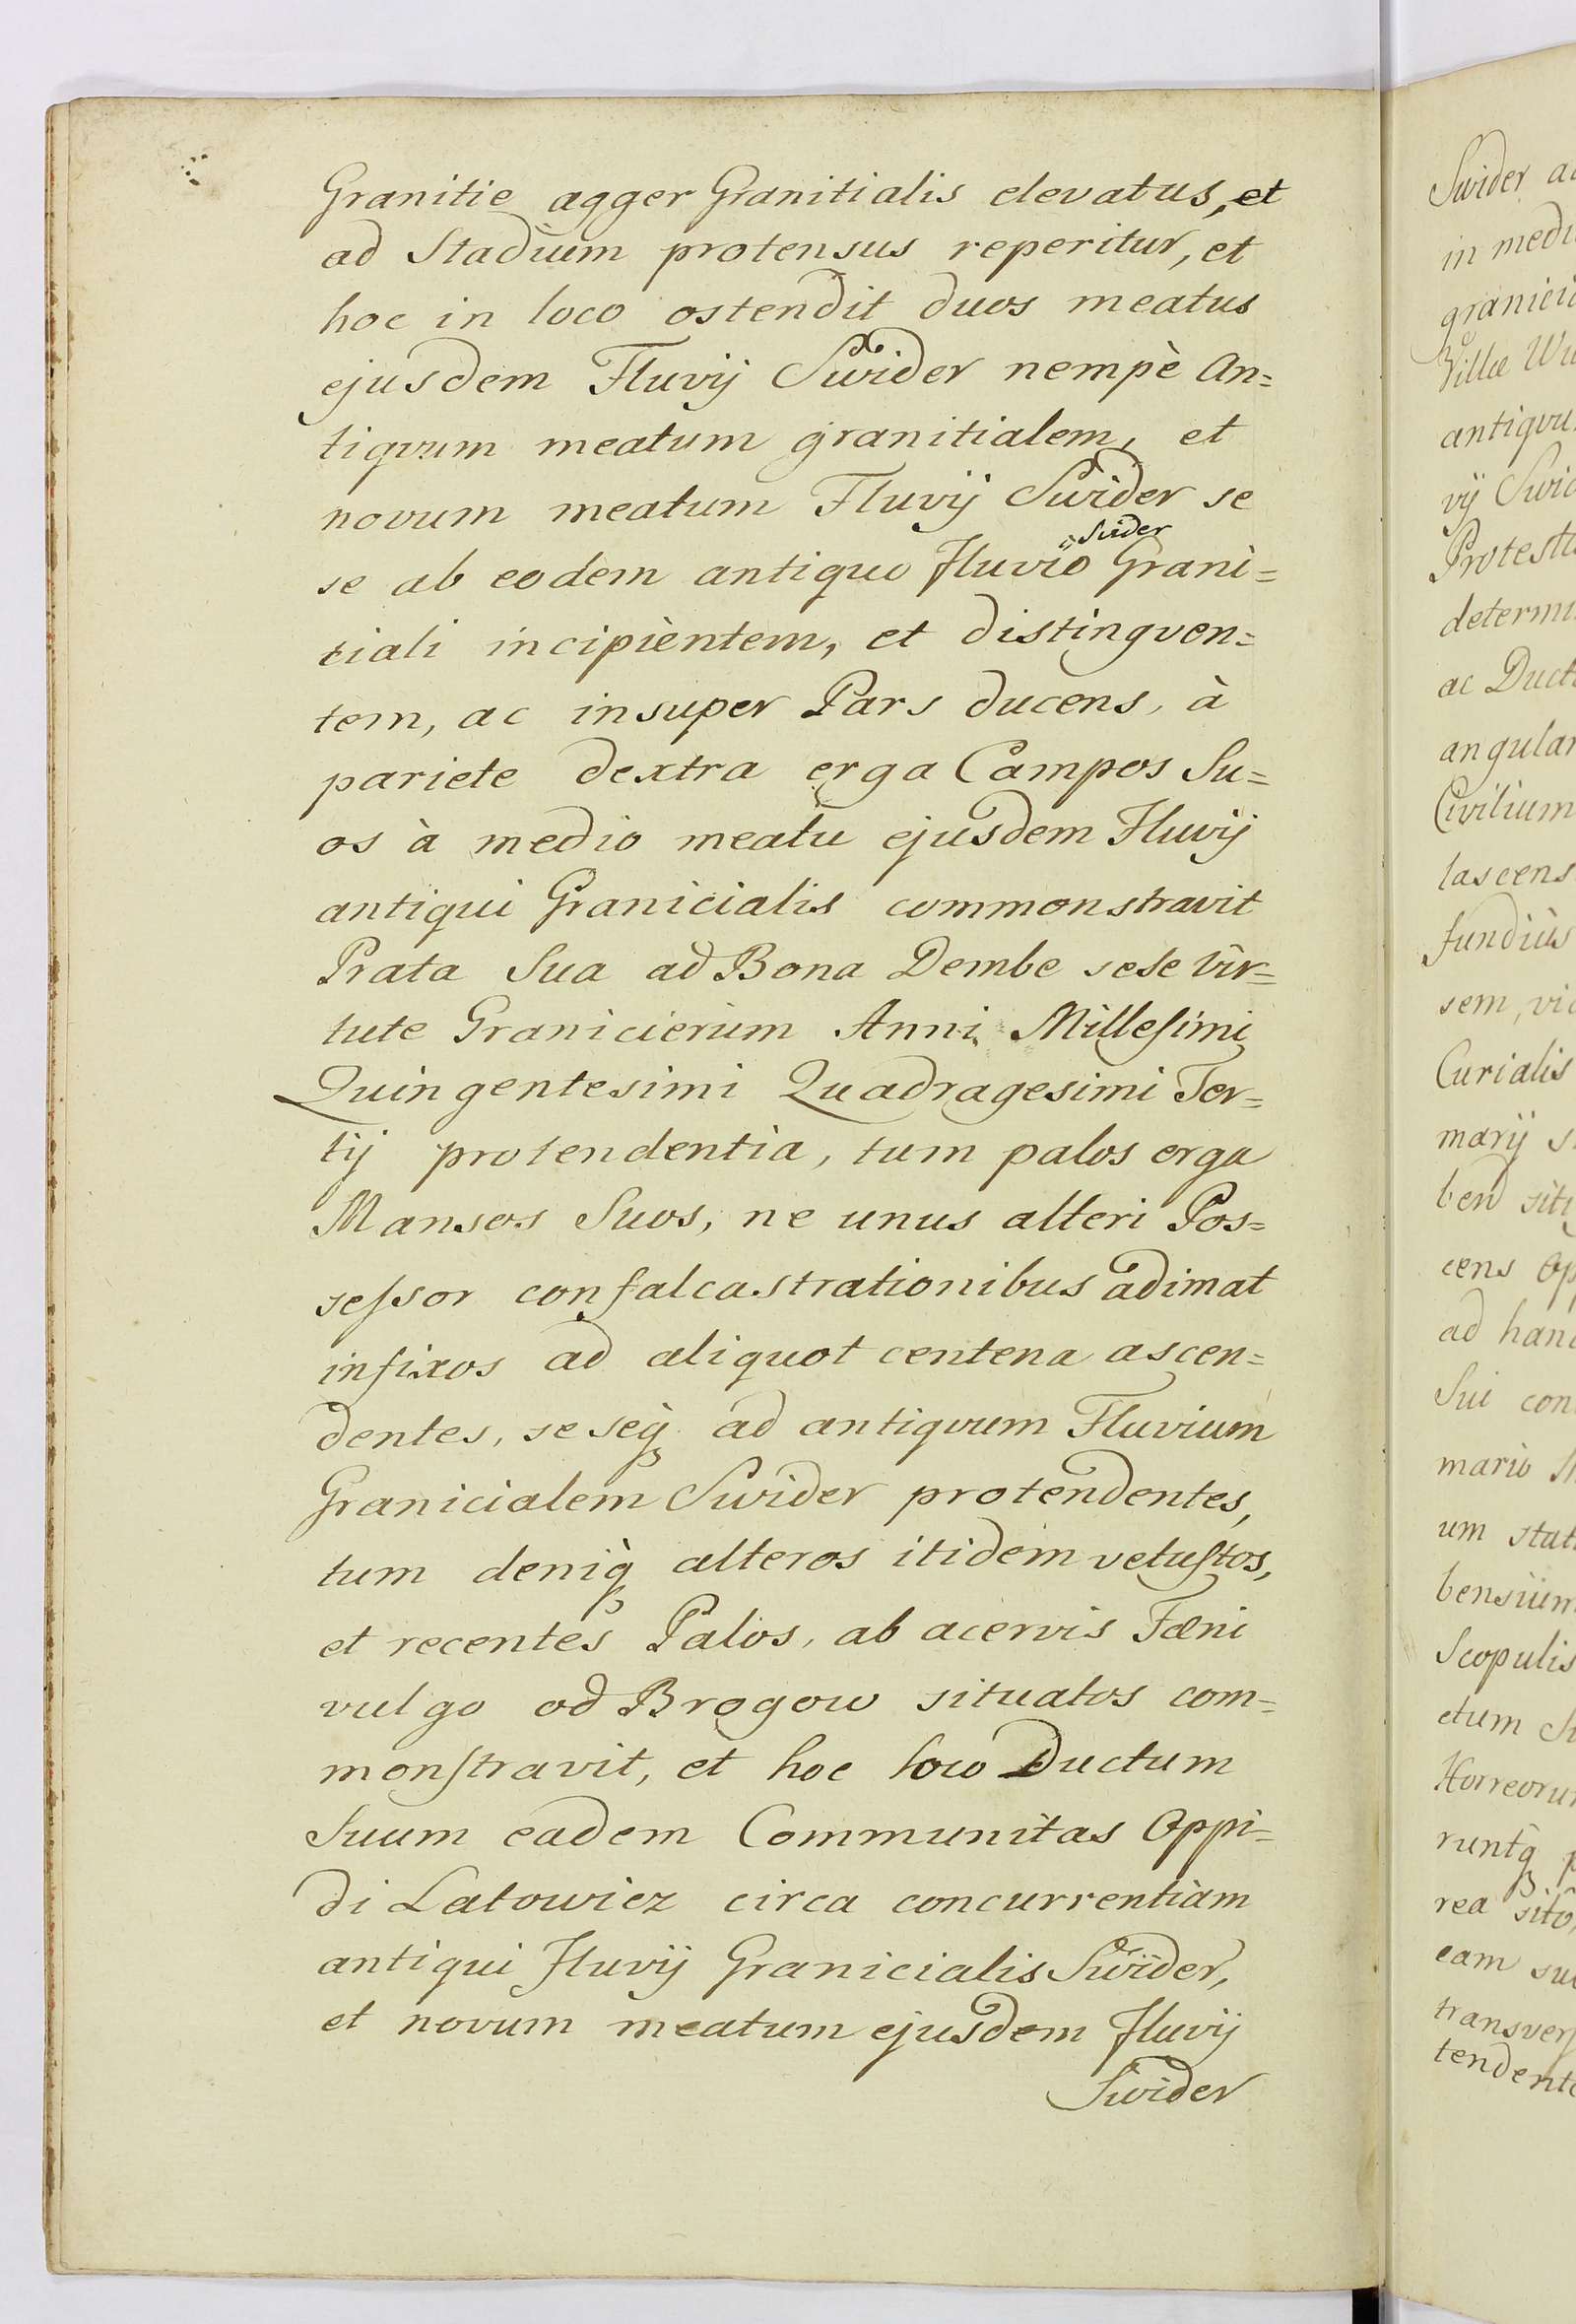 Granitie agger Granitialis elevatus, et
ad Stadium protensus reperitur, et
hoc in loco ostendit duos meatus
ejusdem Fluvij Swider nempè An=
tiqvum meatum granitialem, et
novum meatum Fluvij Swider se
Swider
se ab eodem antiquo Fluvio Grani=
tiali incipientem, et distingven=
tem, ac insuper Pars ducens, à
pariete dextra erga Campos Su=
os à medio meatu ejusdem Fluvij
antiqui Granicialis commonstravit
Prata Sua ad Bona Dembe sese vir=
tute Granicierum Anni Millesimi
Quingentesimi Quadragesimi Ter=
tij protendentia, tum palos erga
Mansos Suos, ne unus alteri Pos=
sessor confalcastrationibus adimat
infixos ad aliquot centena ascen=
dentes, seseq; ad antiqvum Fluvium
Granicialem Swider protendentes,
tum deniq; alteros itidem vetustos,
et recentes Palos, ab acervis Fæni
vulgo od Brogow situatos com=
monstravit, et hoc loco Ductum
Suum eadem Communitas Oppi=
di Latowicz circa concurrentiam
antiqui Fluvij Granicialis Swider,
et novum meatum ejusdem Fluvij
Swider
Swider
in
granici
Villæ
antiqvu
vij Swid
Protest
determi
ac Duct
angular
Civilium
lascens
fundiùs
sem,
Curialis
marij
ben
cens
ad hanc
Sui con
mario
um stat
bensium
Scopulis
ctum
Horreoru
runtq;
rea sito
eam
transvers
tendent